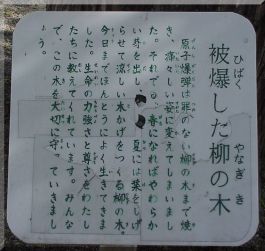 被爆した柳の木
ひばく やなぎ き
原子爆弾は罪のない柳の木まで焼
き、痛々しい姿に変えてしまいまし
た。それでも、春になればやわらか
い芽を出し、夏には葉をしげ
らせて涼しい木かげをつくる柳の木。
今日までほんとうによく生きてきま
した。生命の力強さと尊さをわたし
たちに教えてくれています。みんな
で、この木を大切に守っていきまし
ょう。